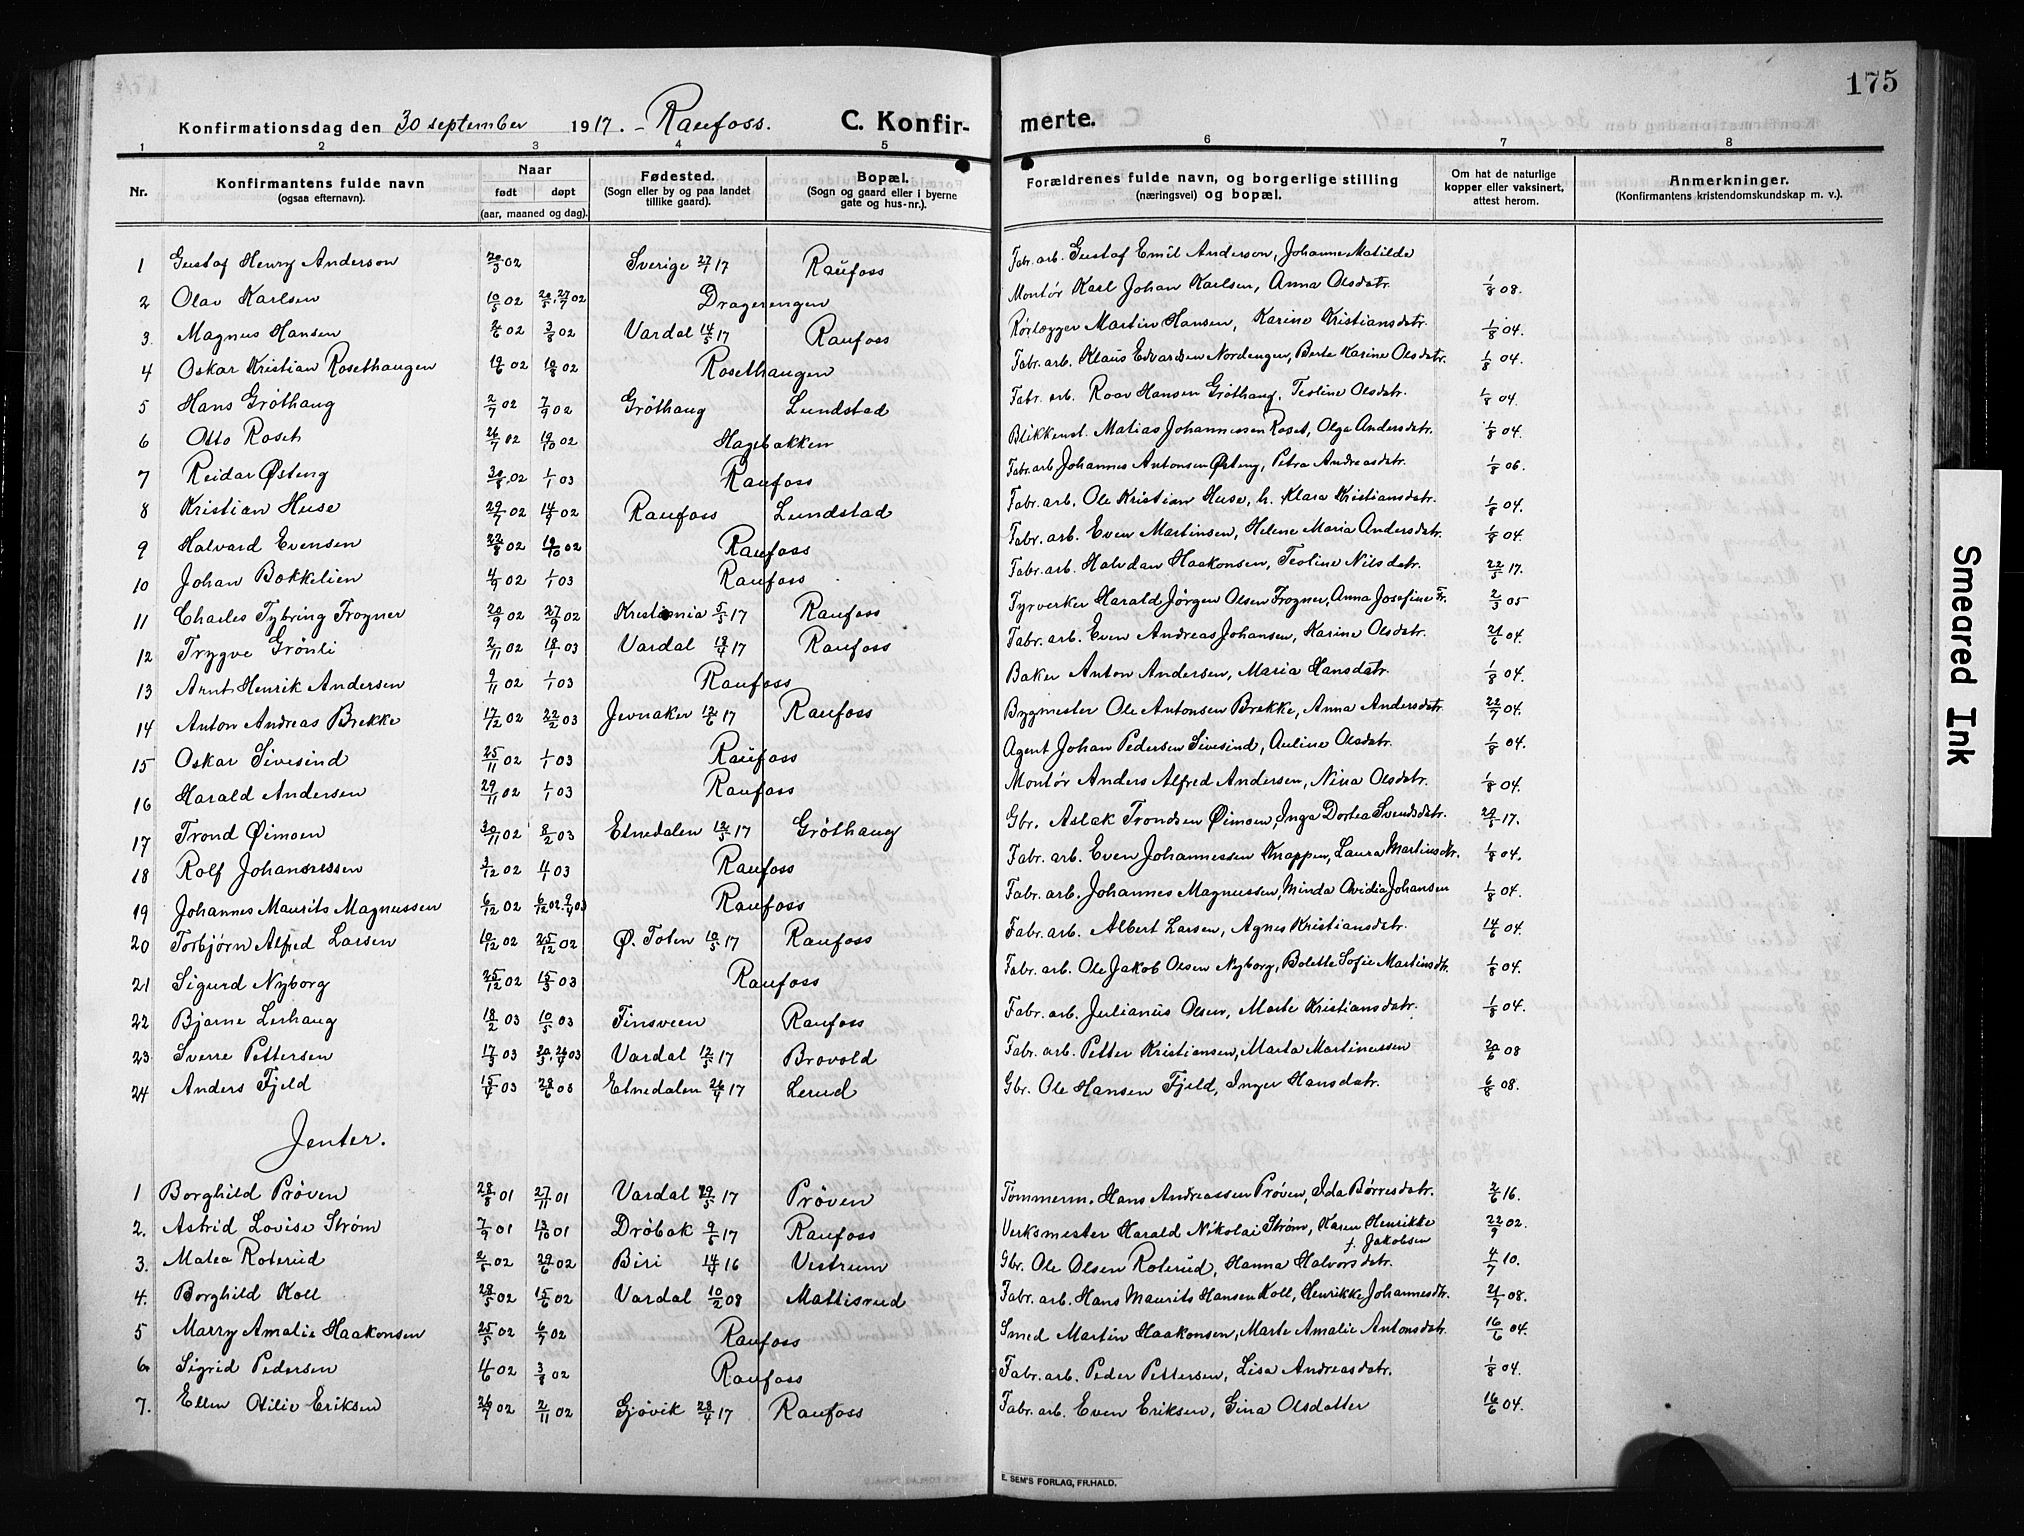 175
Konfirmationsdag den 30 september 1917. - Raufoss. C. Konfirmerte.
1 2 3 4 5 6 7 8
Nr. Konfirmantens fulde navn (ogsaa efternavn). Naar født døpt (aar, maaned og dag). Fødested. (Sogn eller by og paa landet tillike gaard). Bopæl. (Sogn og gaard eller i byerne gate og hus-nr.). Forældrenes fulde navn, og borgerlige stilling (næringsvei) og bopæl. Om hat de naturlige kopper eller vaksinert, attest herom. Anmerkninger. (Konfirmantens kristendomskundskap m. v.).
1 Gustaf Henry Anderson 20/3 02 Sverige 27/1 17 Raufoss Fabr. arb. Gustaf Emil Anderson, Johanne Matilde
2 Olav Karlsen 10/5 02 27/7 02 Dragerengen Montør Karl Johan Karlsen, Anna Olsdatr. 1/8 08.
3. Magnus Hansen 2/6 02 3/8 02 Vardal 14/5 17 Raufoss Rørlægger Martin Hansen, Karine Kristiansdatr. 1/8 04.
4 Oskar Kristian Rosethaugen 19/6 02 10/8 02 Rosethaugen Fabr. arb. Klaus Edvardsen Nordengen, Berte Karine Olsdatr. 1/8 04.
5 Hans Grøthaug 2/7 02 7/9 02 Grøthaug Lundstad Fabr. arb. Roar Hansen Grøthaug, Teoline Olsdatr. 1/8 04.
6 Otto Roset 26/7 02 19/10 02 Hagebakken Blikkensl. Matias Johannessen Roset, Olga Andersdatr. 1/8 04.
7 Reidar Østeng 30/8 02 1/1 03 Raufoss Fabr. arb Johannes Antonsen Østeng, Petra Andreasdatr. 1/8 06.
8 Kristian Huse 29/7 02 14/9 02 Raufoss Lundstad Fabr. arb. Ole Kristian Huse, h. Klara Kristiansdatr. 1/8 04.
9 Halvard Evensen 22/8 02 19/10 02 Raufoss Fabr. arb. Even Martinsen, Helene Maria Andersdatr. 1/8 04.
10 Johan Bakkelien 4/9 02 1/1 03 Raufoss Fabr. arb. Halvdan Haakonsen, Teoline Nilsdatr. 22/5 17.
11 Charles Tybring Frogner 20/9 02 27/9 02 Kristiania 5/5 17 Raufoss Fyrverker Harald Jørgen Olsen Frogner, Anna Josefine Fr. 2/3 05
12 Trygve Grønli 2/11 02 18/1 03 Vardal 18/4 17 Raufoss Fabr. arb. Even Andreas Johansen, Karine Olsdatr. 21/6 04.
13 Arnt Henrik Andersen 9/11 02 1/1 03 Raufoss Baker Anton Andersen, Maria Hansdatr. 1/8 04.
14 Anton Andreas Brekke 17/12 02 22/2 03 Jevnaker 12/6 17 Raufoss Bygmester Ole Antonsen Brekke, Anna Andersdatr. 22/7 04.
15 Oskar Sivesind 25/11 02 1/1 03 Raufoss Agent Johan Pedersen Sivesind, Auline Olsdatr. 1/8 04.
16 Harald Andersen 29/11 02 1/1 03 Raufoss Montør Anders Alfred Andersen, Nina Olsdatr. 1/8 04.
17 Trond Øimoen 30/11 02 8/2 03 Etnedalen 12/5 17 Grøthaug Gbr. Aslak Trondsen Øimoen, Inga Dortea Svendsdatr. 29/5 17.
18 Rolf Johannessen 3/12 02 4/1 03 Raufoss Fabr. arb. Even Johannessen Knappen, Laura Martinsdtr. 1/8 04.
19 Johannes Maurits Magnussen 6/12 02 6/12 02. 9/4 03 Raufoss Fabr. arb. Johannes Magnussen, Minda Ovidia Johansen 1/8 04.
20 Torbjørn Alfred Larsen 10/12 02 25/12 02 Ø. Toten 10/5 17 Raufoss Fabr. arb. Albert Larsen, Agnes Kristiansdatr. 14/6 04.
21 Sigurd Nyborg 25/12 02 15/3 03 Raufoss Fabr. arb. Ole Jakob Olsen Nyborg, Bolette Sofie Martinsdtr. 1/8 04.
22 Bjarne Lerhaug 18/2 03 10/5 03 Finsveen Raufoss Fabr. arb. Julianus Olsen, Marte Kristiansdatr. 1/8 04.
23. Sverre Pettersen 17/3 03 Vardal 12/5 17 Brovold Fabr. arb. Petter Kristiansen, Marta Martinussen 20/6 08
24 Anders Fjeld 15/4 03 28/6 03 Etnedalen 26/4 17 Lerud Gbr. Ole Hansen Fjeld, Inger Hansdatr. 6/8 08.
Jenter.
1 Borghild Prøven 28/8 01 27/11 01 Vardal 29/5 17 Prøven Tømmerm. Hans Andreassen Prøven, Ida Børresdatr. 2/6 16.
2. Astrid Lovise Strøm 7/9 01 13/10 01 Drøbak 9/6 17 Raufoss Verksmester Harald Nikolai Strøm, Karen Henrikke 22/9 02.
f. Jakobsen
3. Matea Roterud 2/5 02 29/6 02 Biri 14/4 16 Vestrum Gbr. Ole Olsen Roterud, Hanna Halvorsdatr. 4/7 10.
4. Borghild Koll 28/5 02 15/6 02 Vardal 10/2 08 Mattisrud Fabr. arb. Hans Maurits Hansen Koll, Henrikke Johannesdtr. 21/7 08.
5 Marry Amalie Haakonsen 25/5 02 6/7 02 Raufoss Smed Martin Haakonsen, Marte Amalie Antonsdatr. 16/6 04.
6. Sigrid Pedersen 4/6 02 3/8 02 Raufoss Fabr. arb. Peder Pettersen, Lisa Andreasdatr. 1/8 04.
7. Ellen Otilie Eriksen 26/7 02 2/11 02 Gjøvik 28/4 17 Raufoss Fabr. arb. Even Eriksen, Gina Olsdatter 16/6 04.
E. SEM'S FORLAG, FR.HALD.
Smeared Ink